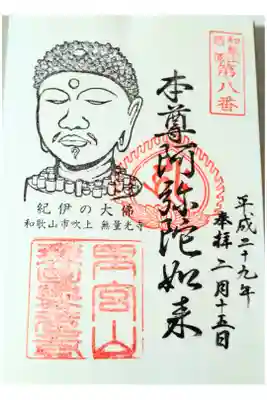 第八番
本尊阿弥陀如来
平成二十九年
奉拝 二月十五日
紀伊の大佛
和歌山市吹上 無量光寺